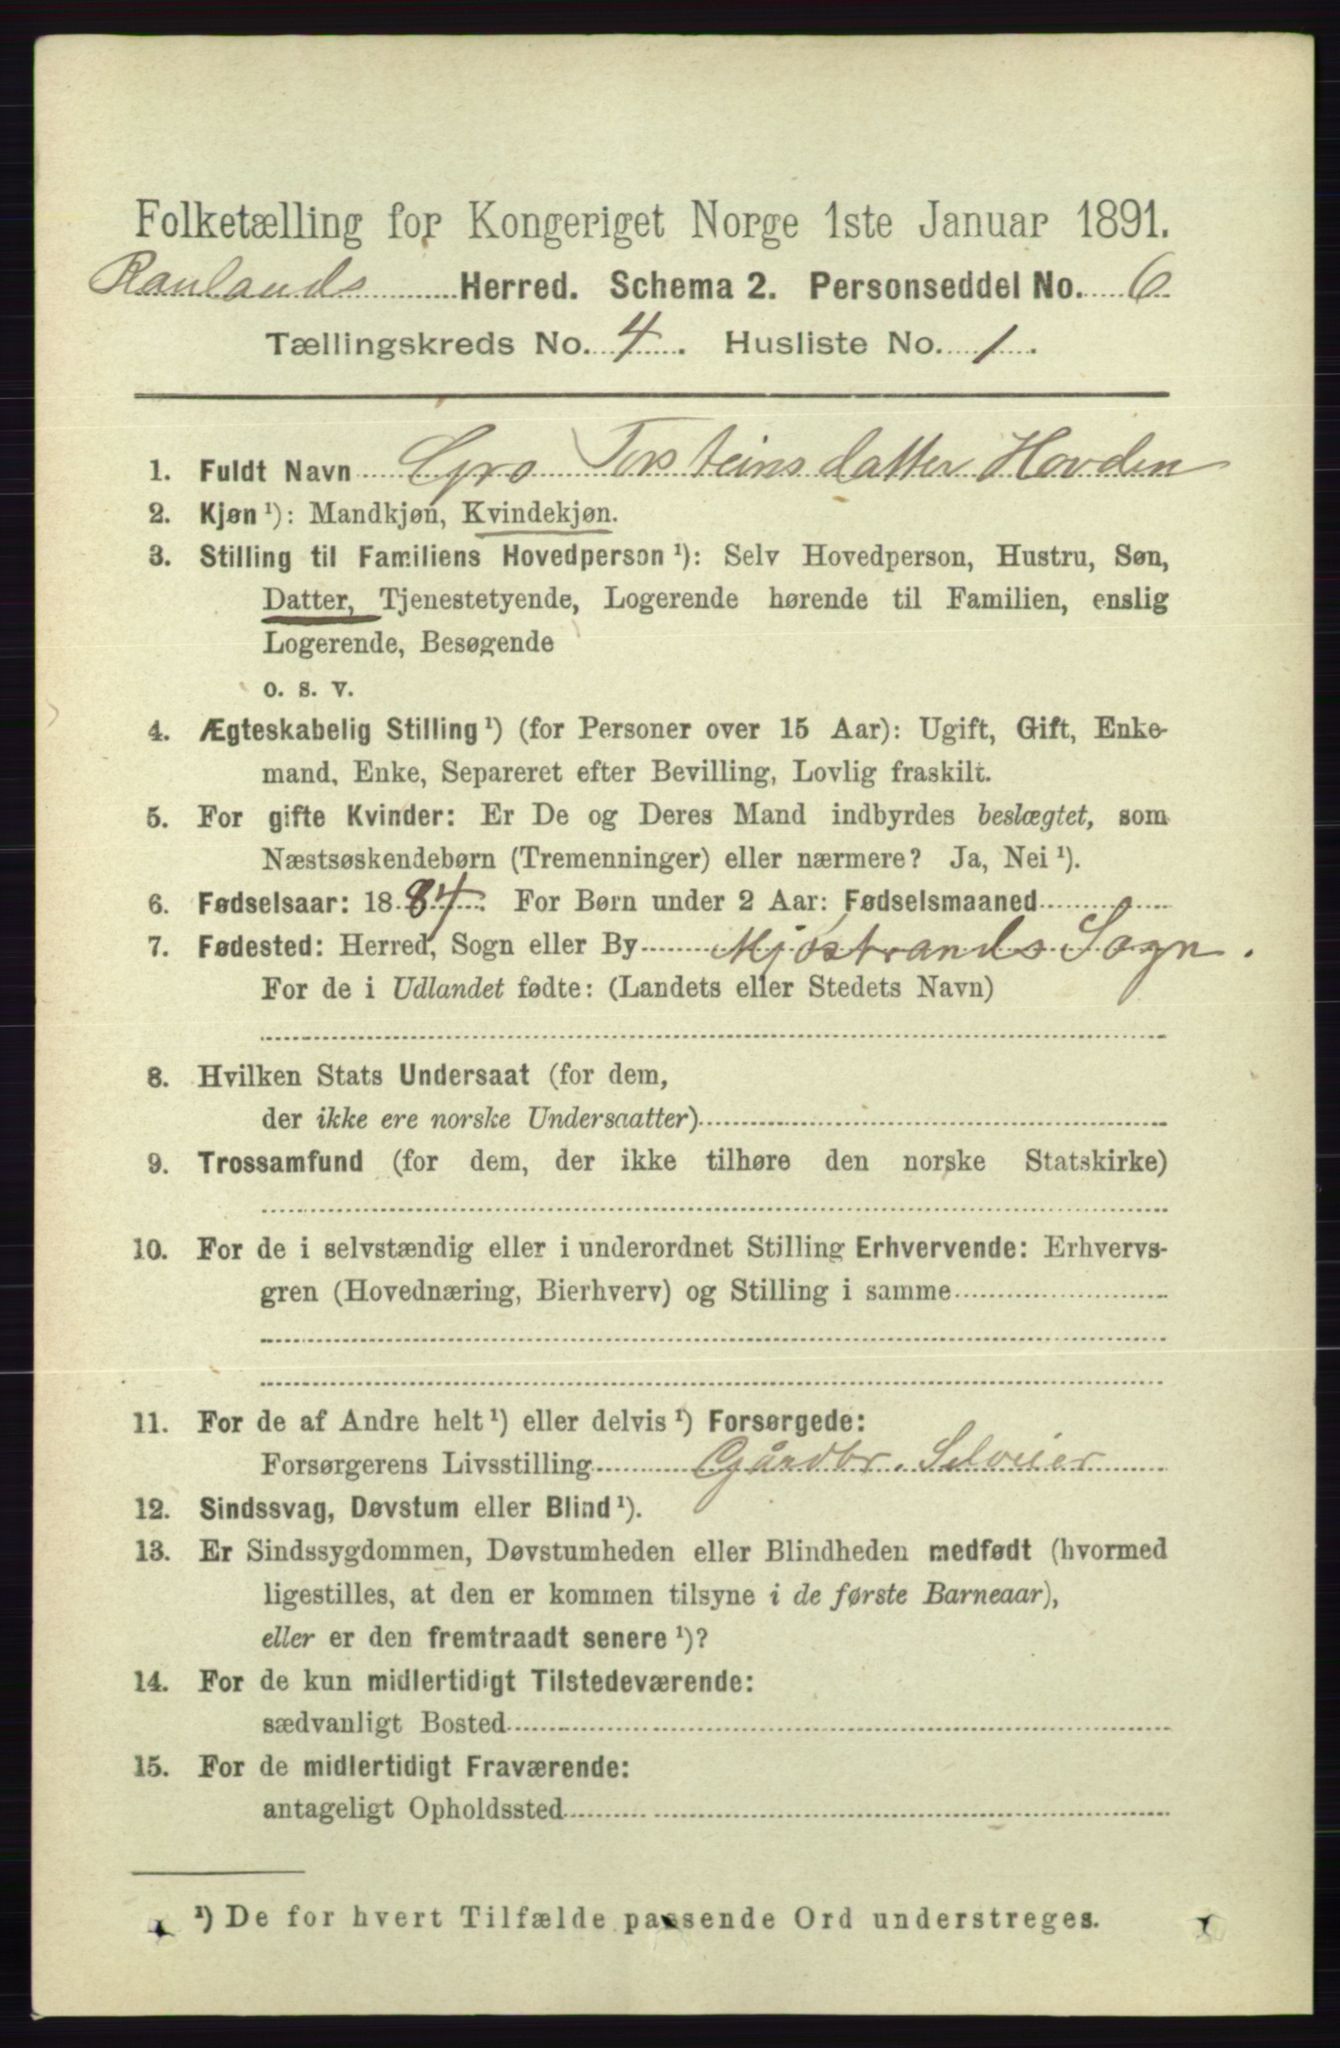 Folketælling for Kongeriget Norge 1ste Januar 1891.
Raulands Herred. Schema 2. Personseddel No. 6
Tællingskreds No. 4. Husliste No. 1.
1. Fuldt Navn Gro Torsteinsdatter Hovden
2. Kjøn ¹): Mandkjøn, Kvindekjøn.
3. Stilling til Familiens Hovedperson ¹): Selv Hovedperson, Hustru, Søn,
Datter, Tjenestetyende, Logerende hørende til Familien, enslig
Logerende, Besøgende
o. s. v.
4. Ægteskabelig Stilling ¹) (for Personer over 15 Aar): Ugift, Gift, Enke-
mand, Enke, Separeret efter Bevilling, Lovlig fraskilt.
5. For gifte Kvinder: Er De og Deres Mand indbyrdes beslægtet, som
Næstsøskendebørn (Tremenninger) eller nærmere? Ja, Nei ¹).
6. Fødselsaar: 1884. For Børn under 2 Aar: Fødselsmaaned
7. Fødested: Herred, Sogn eller By Mjøstrands Sogn.
For de i Udlandet fødte: (Landets eller Stedets Navn)
8. Hvilken Stats Undersaat (for dem,
der ikke ere norske Undersaatter)
9. Trossamfund (for dem, der ikke tilhøre den norske Statskirke)
10. For de i selvstændig eller i underordnet Stilling Erhvervende: Erhvervs-
gren (Hovednæring, Bierhverv) og Stilling i samme
11. For de af Andre helt ¹) eller delvis ¹) Forsørgede:
Forsørgerens Livsstilling Gårdbr. Selveier
12. Sindssvag, Døvstum eller Blind ¹).
13. Er Sindssygdommen, Døvstumheden eller Blindheden medfødt (hvormed
ligestilles, at den er kommen tilsyne i de første Barneaar),
eller er den fremtraadt senere ¹)?
14. For de kun midlertidigt Tilstedeværende:
sædvanligt Bosted
15. For de midlertidigt Fraværende:
antageligt Opholdssted
¹) De for hvert Tilfælde passende Ord understreges.